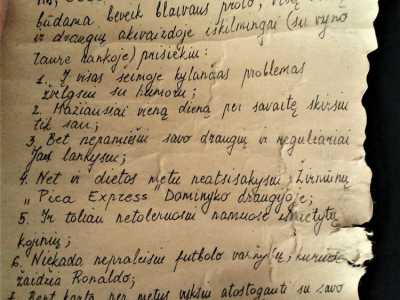 būdama beveik blaivaus proto,
ir draugų akivaizdoje iškilmingai (su vyno
taure rankoje) prisiekiu:
1. Į visas šeimoje kylančias problemas
žiūrėsiu su humoru;
2. Mažiausiai vieną dieną per savaitę skirsiu
tik sau;
3. Bet nepamiršiu savo draugių ir reguliariai
jas lankysiu;
4. Net ir dietos metu neatsisakysiu Žirmūnų
„Pica Express" Dominyko draugijoje;
5. Ir toliau netoleruosiu namuose išmėtytų
kojinių;
6. Niekada nepraleisiu futbolo varžybų, kuriose
žaidžia Ronaldo;
Bent kartą per metus vyksiu atostogauti su savo